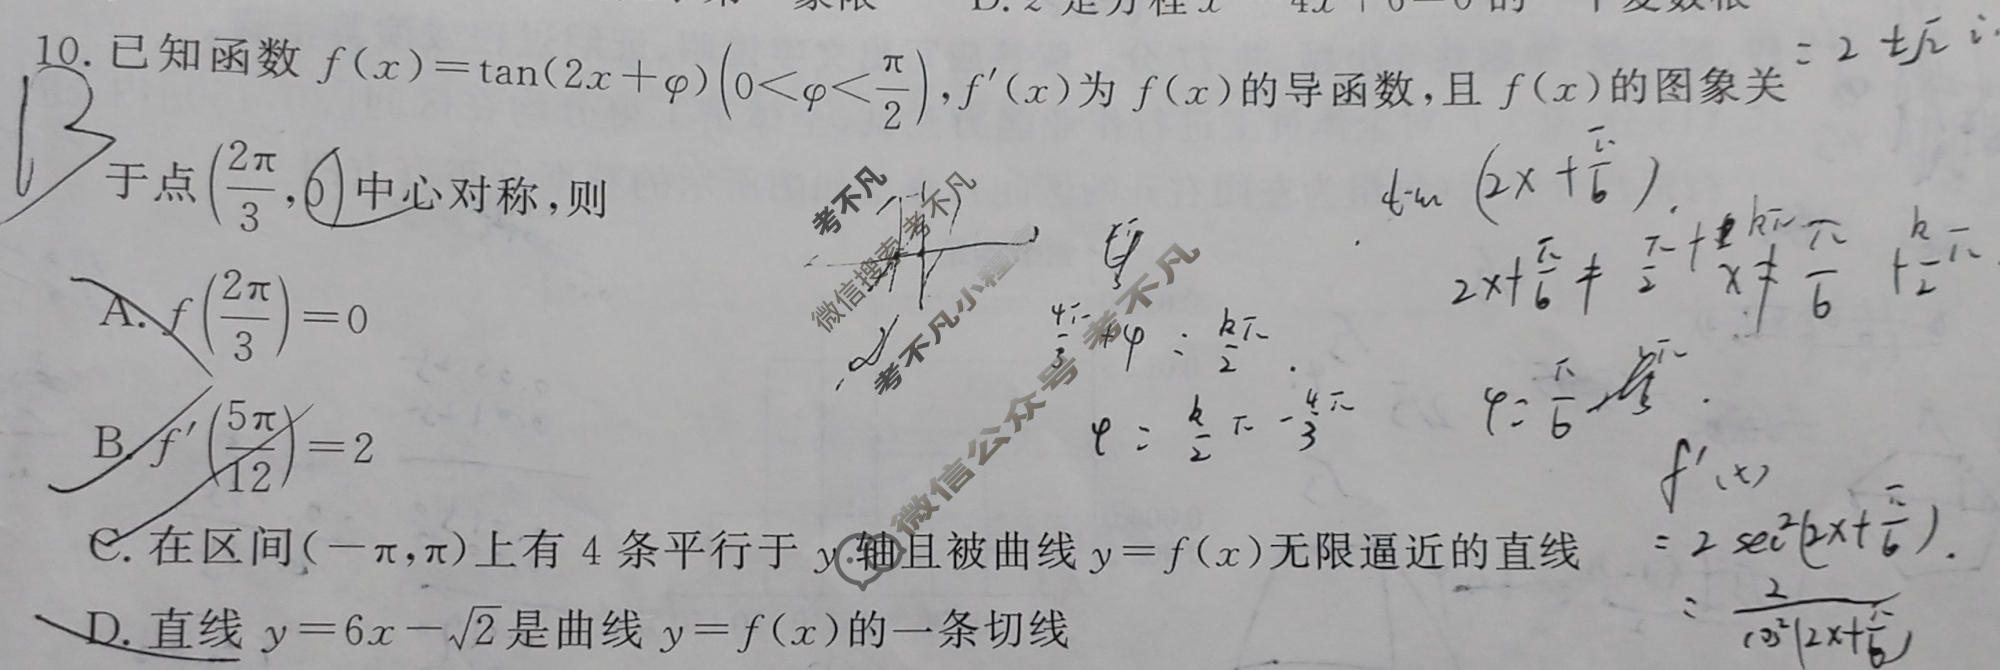 10. 已知函数 f(x)=tan(2x+φ)(0<φ<π/2),f′(x)为 f(x)的导函数,且 f(x)的图象关
于点(2π/3,0)中心对称,则
A. f(2π/3)=0
B. f′(5π/12)=2
C. 在区间(-π,π)上有 4 条平行于 y 轴且被曲线 y=f(x)无限逼近的直线
D. 直线 y=6x-√2是曲线 y=f(x)的一条切线
B
=2±√2 i
tan(2x+π/6).
2x+π/6≠π/2+kπ
x≠π/6+k/2π
4π/3+φ=k/2π.
φ=k/2π-4/3π
φ=π/6
f′(x)
=2sec²(2x+π/6).
=2/cos²(2x+π/6)
考不凡
微信搜索 考不凡
考不凡小程序
微信公众号 考不凡